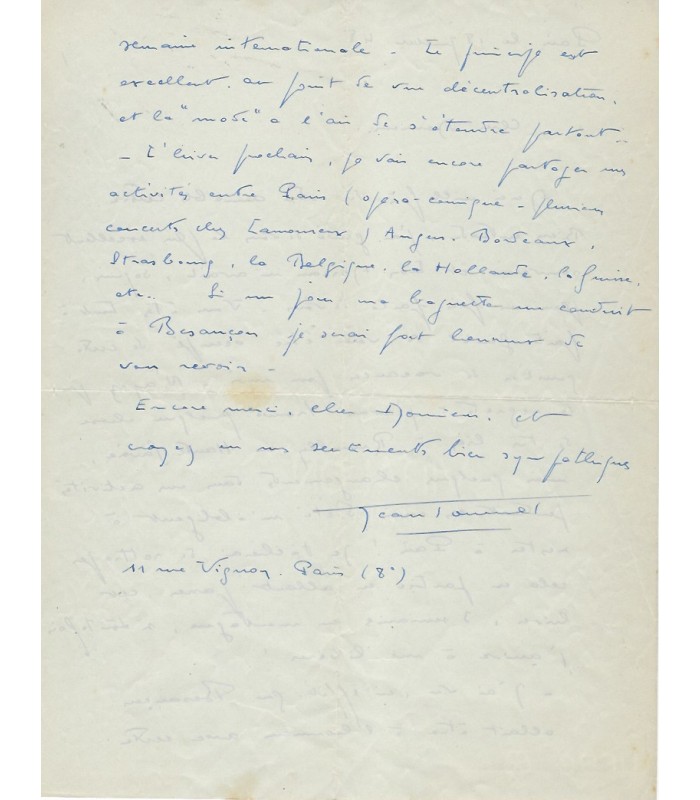 semaine internationale - Le principe est
excellent, au point de vue décentralisation,
et la "mode" a l'air de s'étendre partout...
- L'hiver prochain, je vais encore partager mes
activités entre Paris (opéra-comique - plusieurs
concerts chez Lamoureux) Angers, Bordeaux,
Strasbourg, la Belgique, la Hollande, la Suisse,
etc... Si un jour, ma baguette me conduit
à Besançon je serai fort heureux de
vous revoir -
Encore merci, cher Monsieur, et
croyez en mes sentiments bien sympathiques
Jean
11 rue Vignon. Paris (8°)